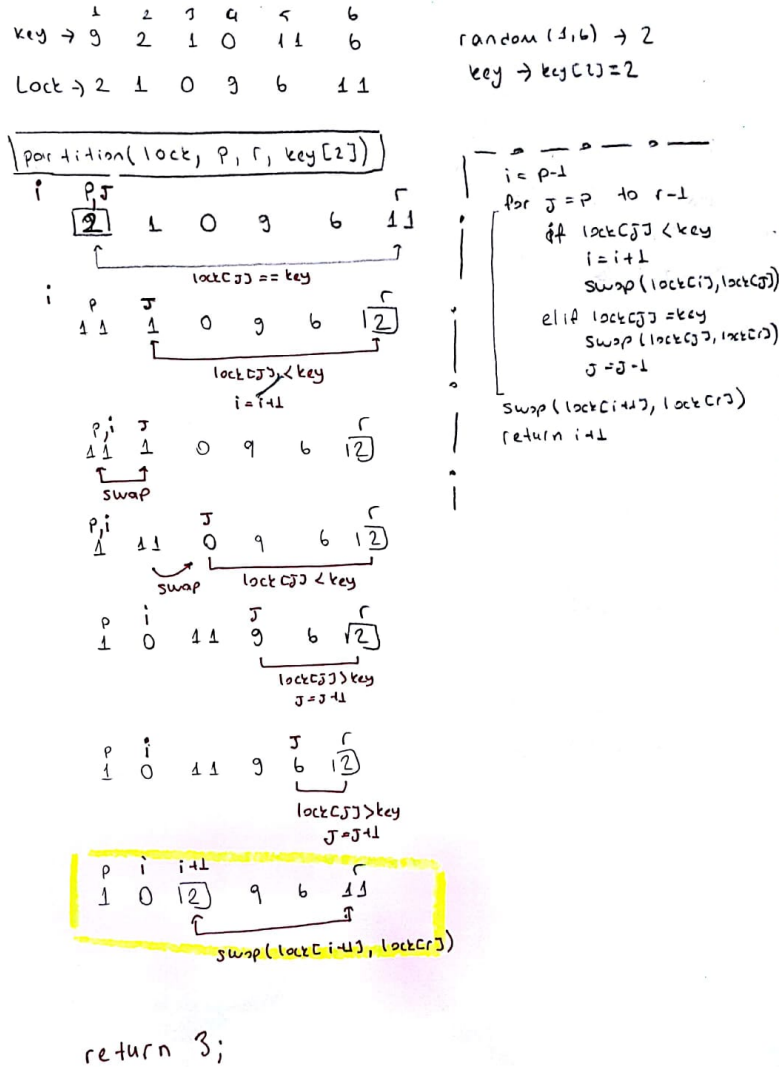 1 2 3 4 5 6
key → 9 2 1 0 11 6
Lock → 2 1 0 9 6 11
random (1,6) → 2
key → key[2]=2
partition( lock, P, r, key[2])
i P,J r
2 1 0 9 6 11
lock[J] == key
i P J r
11 1 0 9 6 2
lock[J] < key
i = i+1
P,i J r
11 1 0 9 6 2
swap
P,i J r
1 11 0 9 6 2
swap lock[J] < key
P i J r
1 0 11 9 6 2
lock[J] > key
J = J+1
P i J r
1 0 11 9 6 2
lock[J] > key
J = J+1
P i i+1 r
1 0 2 9 6 11
swap( lock[i+1], lock[r])
return 3;
i = p-1
for J = p to r-1
if lock[J] < key
i = i+1
swap (lock[i], lock[J])
elif lock[J] = key
swap (lock[J], lock[r])
J = J-1
swap (lock[i+1], lock[r])
return i+1